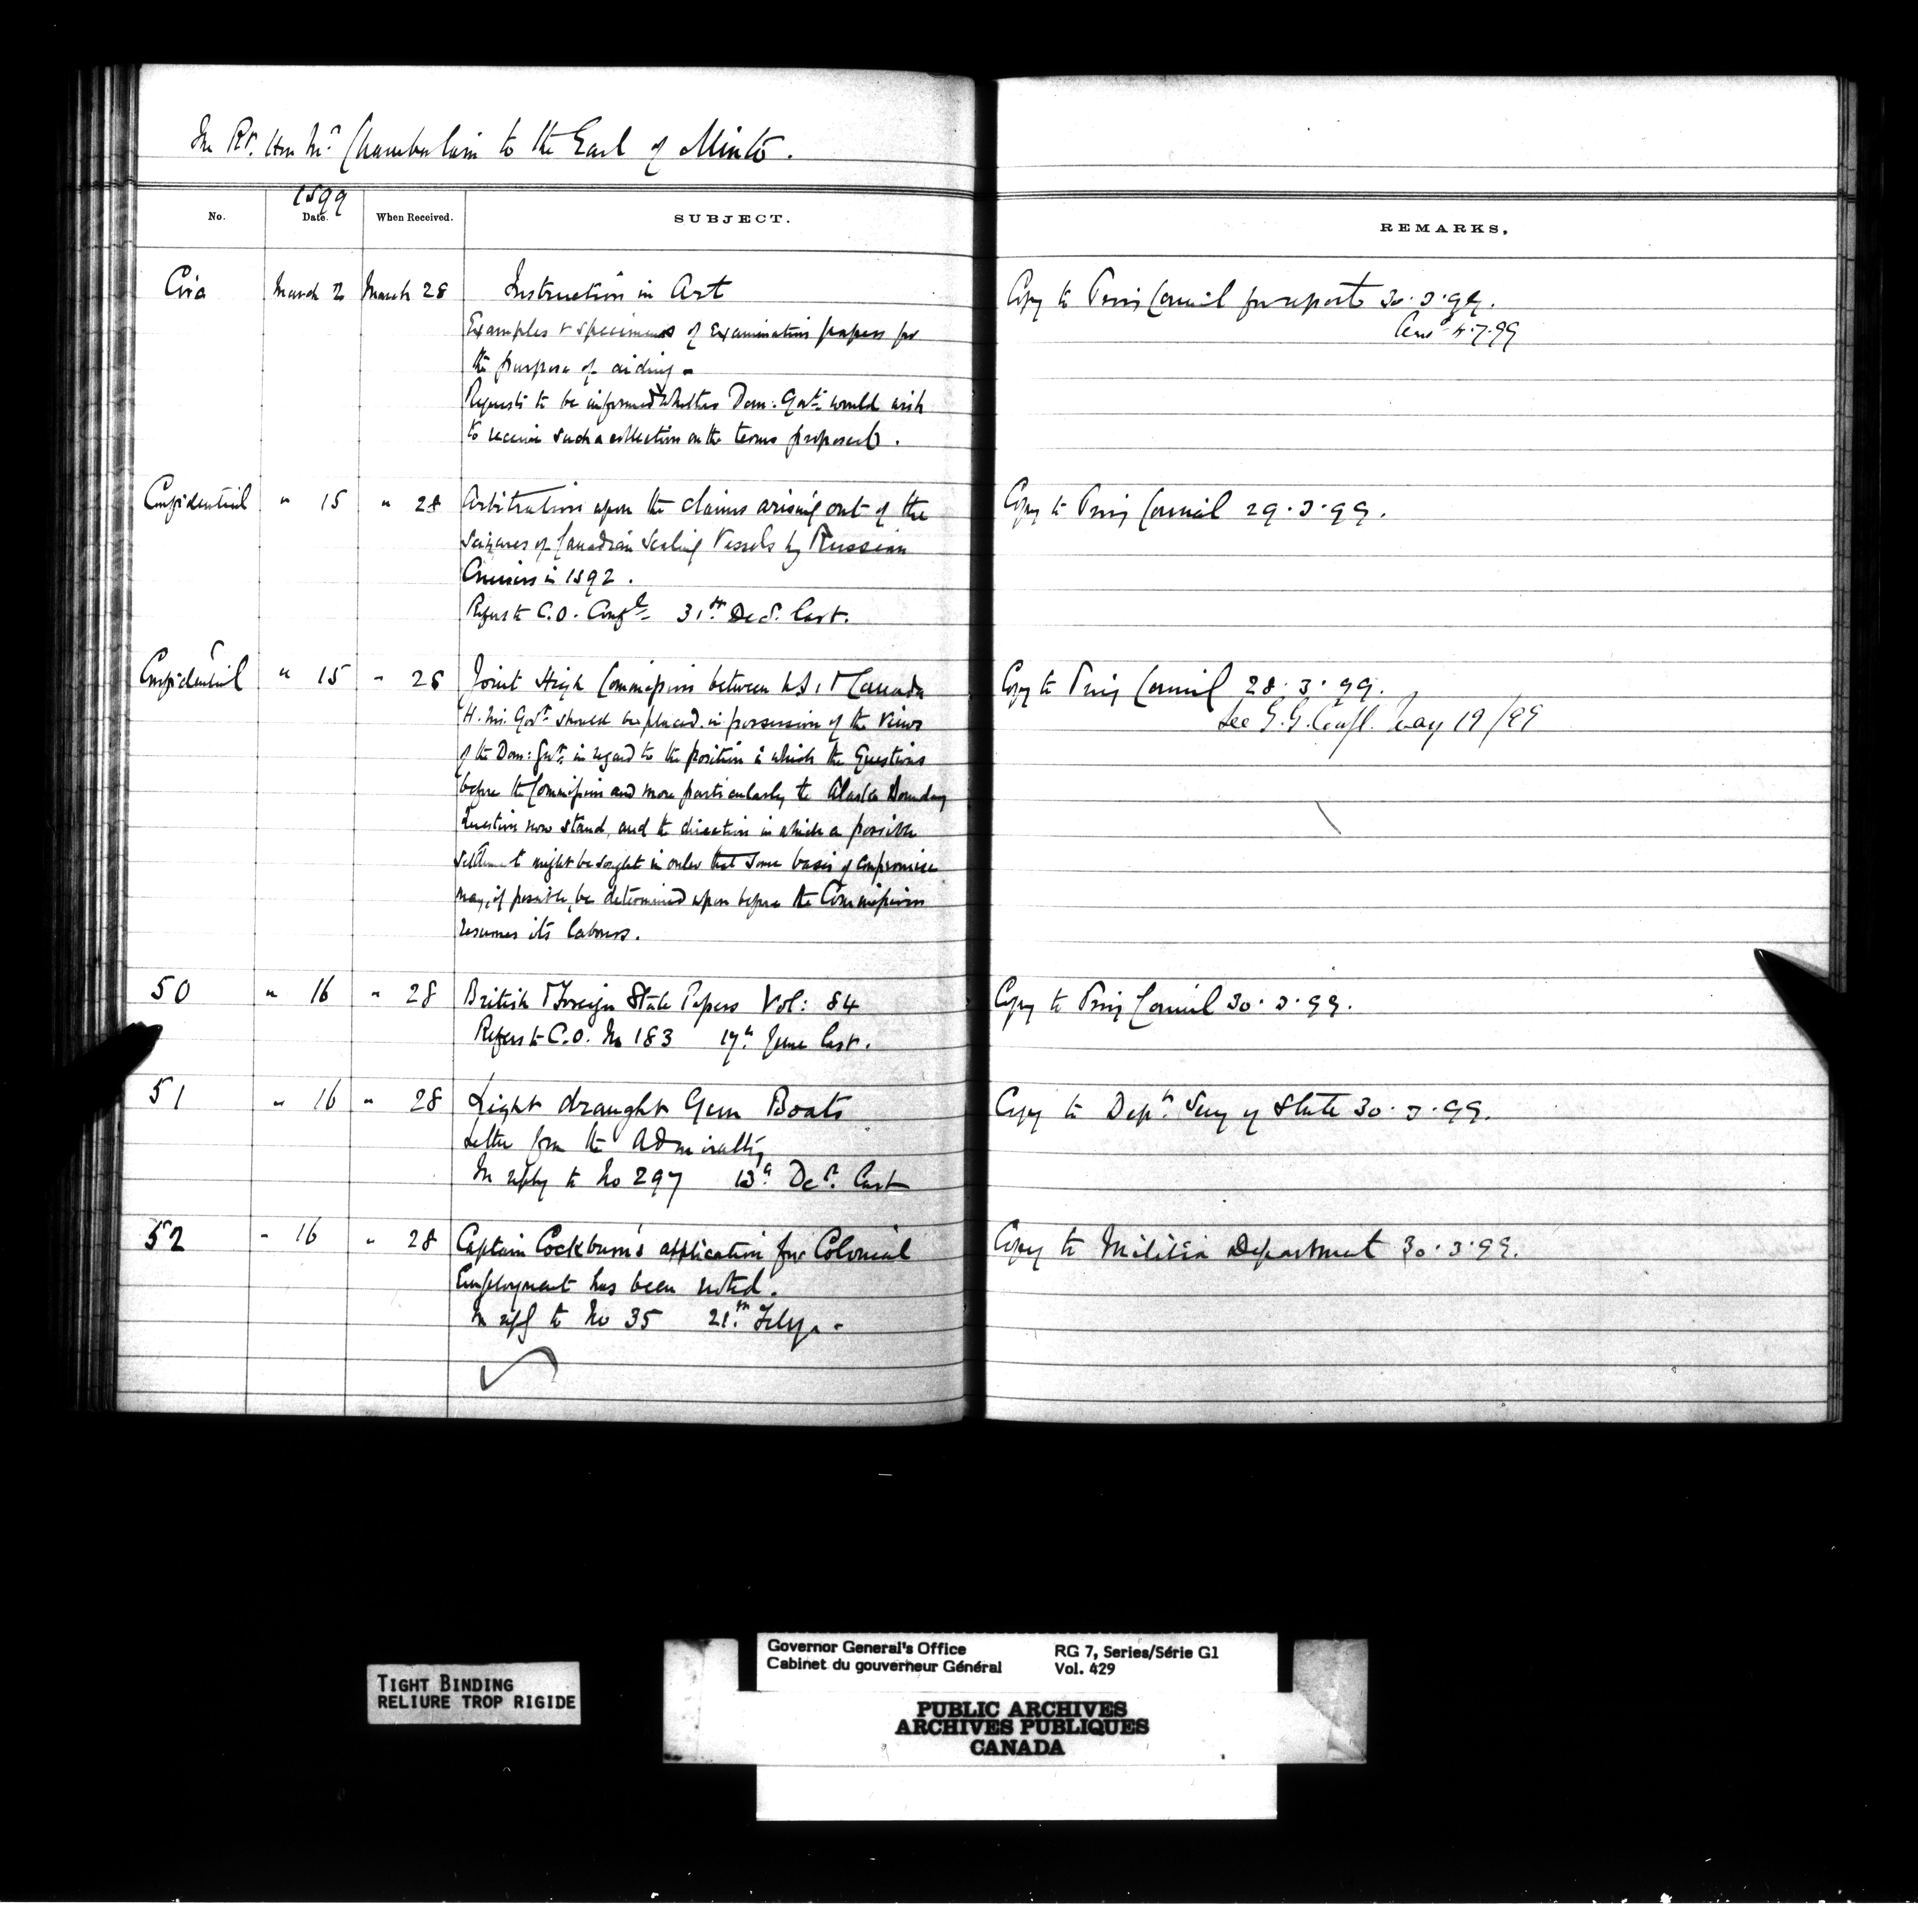 The Rt. Hon Mr Chamberlain to the Earl of Minto.
1899
No. Date. When Received. SUBJECT. REMARKS.
Circ March 2 March 28 Instruction in Art Copy to Privy Council for report 30.3.99.
Examples & specimens of Examination papers for Ansd 4.7.99
the purpose of aiding -
Requests to be informed whether Dom: Govt. would wish
to receive such a collection on the terms proposed.
Confidential " 15 " 28 Arbitration upon the claims arising out of the Copy to Privy Council 29.3.99.
seizures of Canadian Sealing Vessels by Russian
Cruisers in 1892.
Refers to C.O. Confl. 31st Decr. last.
Confidential " 15 " 28 Joint High Commission between U.S. & Canada Copy to Privy Council 28.3.99.
H. M. Govt. should be placed in possession of the views See G.G. Confl. May 19/99
of the Dom: Govt. in regard to the position in which the Questions
before the Commission and more particularly the Alaska Boundary
Question now stand, and the direction in which a possible
settlement might be sought in order that some basis of compromise
may, if possible, be determined upon before the Commission
resumes its labours.
50 " 16 " 28 British & Foreign State Papers Vol: 84 Copy to Privy Council 30.3.99.
Refers to C.O. No 183 17th June last.
51 " 16 " 28 Light draught Gun Boats Copy to Dept. Secy of State 30.3.99.
Letter from the Admiralty
In reply to No 297 13th Decr. last
52 " 16 " 28 Captain Cockburn's application for Colonial Copy to Militia Department 30.3.99.
Employment has been noted.
In reply to No 35 21st Feby. -
TIGHT BINDING
RELIURE TROP RIGIDE
Governor General's Office RG 7, Series/Série G1
Cabinet du gouverneur Général Vol. 429
PUBLIC ARCHIVES
ARCHIVES PUBLIQUES
CANADA